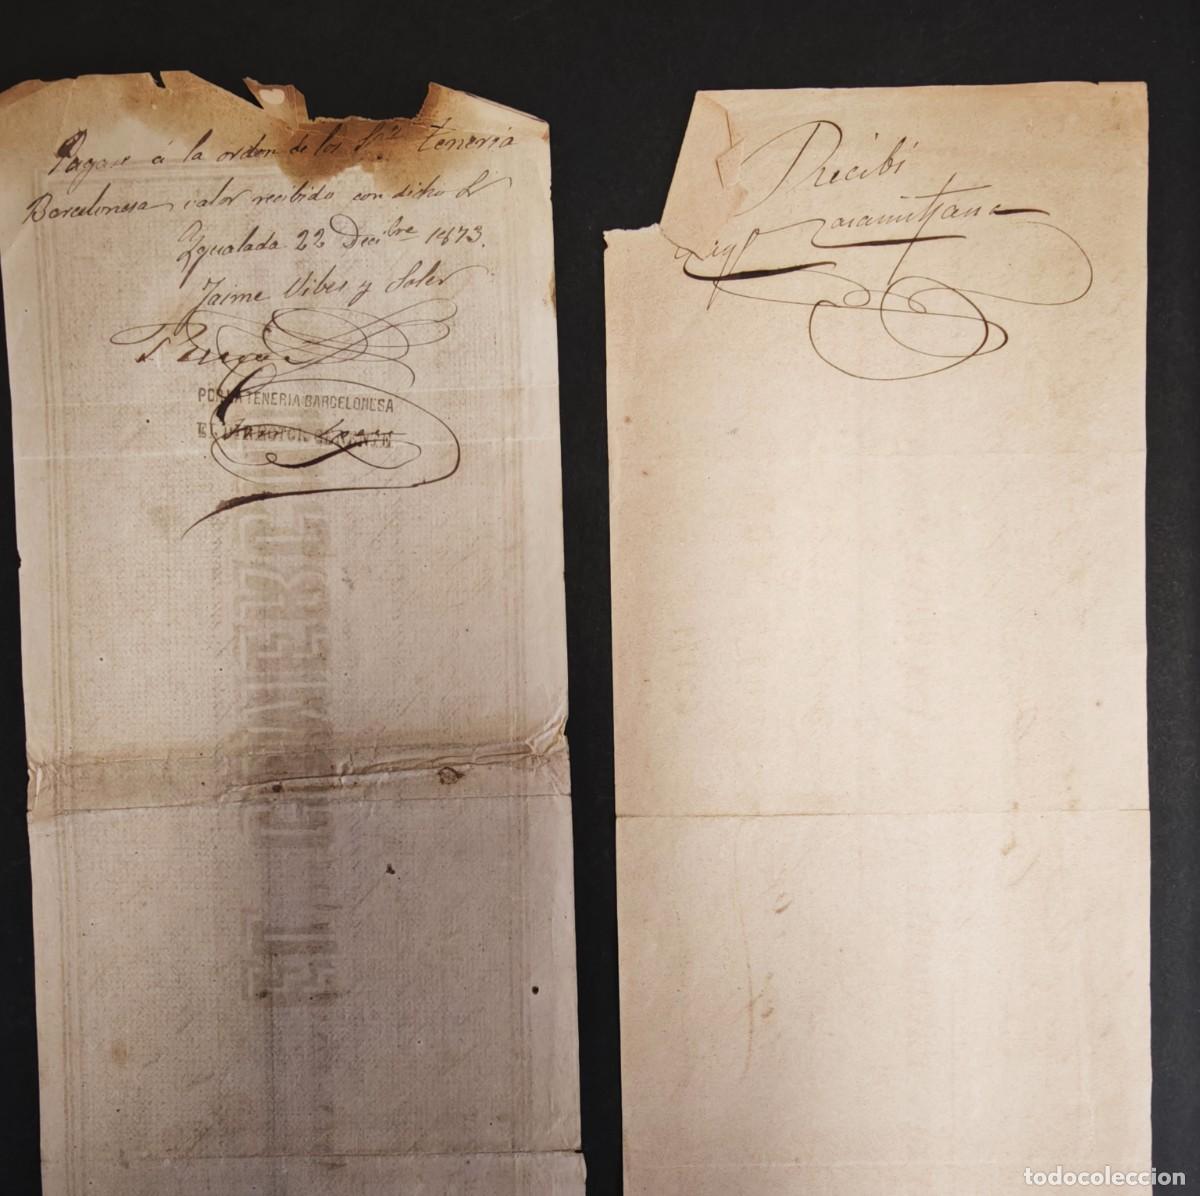 Pagase á la orden de los Sres Teneria
Barcelonesa valor recibido con dicho Sr
Ygualada 22 Decibre 1873.
Jaime Ribes y Soler
POR LA TENERIA BARCELONESA
EL DIRECTOR GERENTE
EL COMERCIO
Recibi
todocoleccion